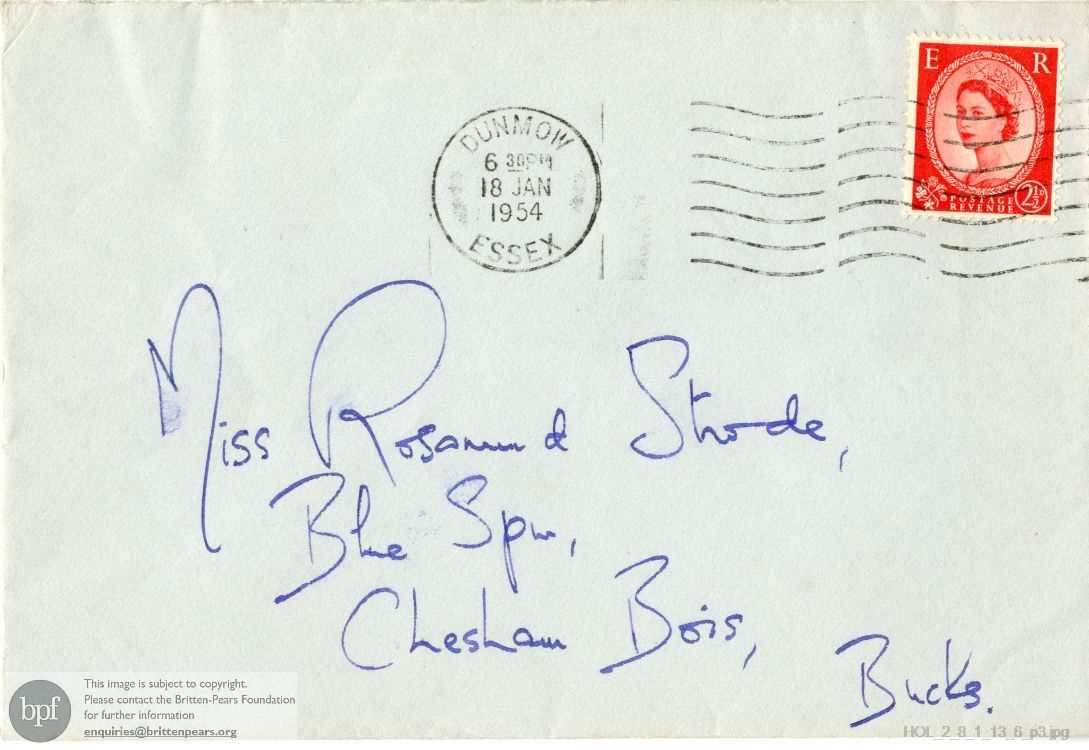 E R
POSTAGE
REVENUE
2½D
DUNMOW
6 30PM
18 JAN
1954
ESSEX
Miss Rosamund Strode,
Blue Spur,
Chesham Bois,
Bucks.
bpf
This image is subject to copyright.
Please contact the Britten-Pears Foundation
for further information
enquiries@brittenpears.org
HOL_2_8_1_13_6_p3.jpg